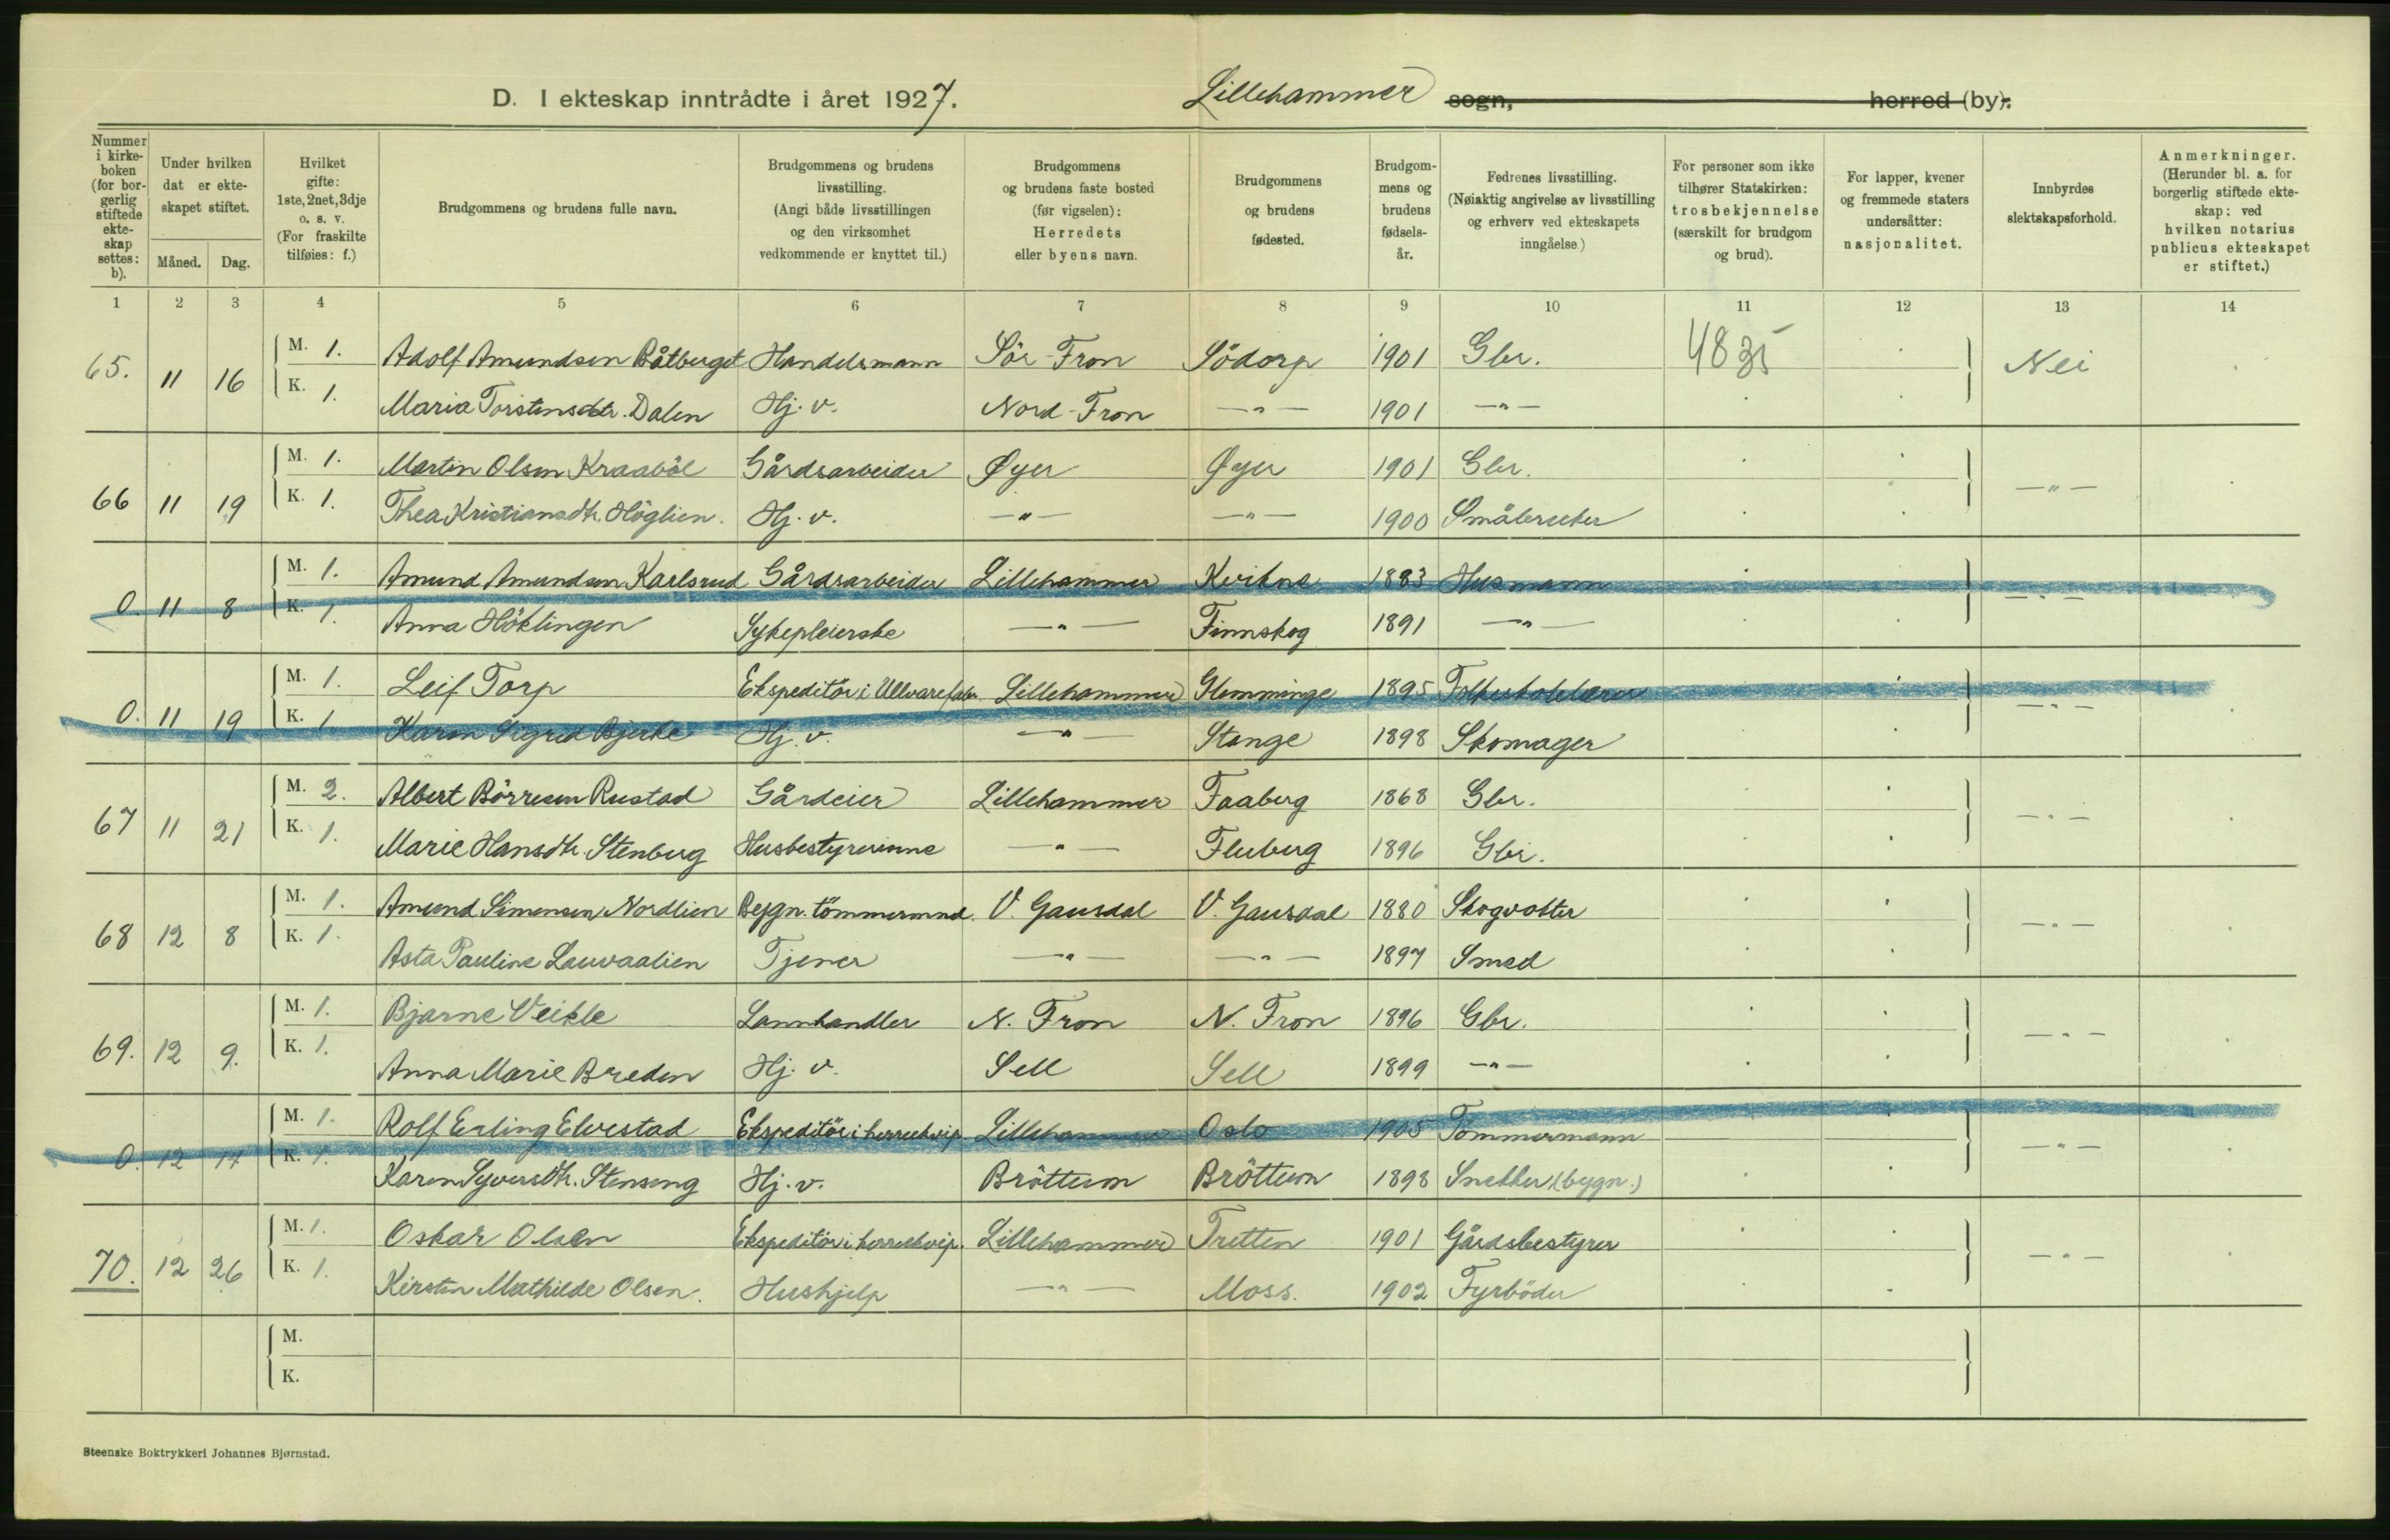 D. I ekteskap inntrådte i året 1927. Lillehammer sogn, herred (by).
Nummer i kirkeboken (for borgerlig stiftede ekteskap settes: b).
Under hvilken dat er ekteskapet stiftet.
Måned. Dag.
Hvilket gifte: 1ste, 2net, 3dje o. s. v. (For fraskilte tilføies: f.)
Brudgommens og brudens fulle navn.
Brudgommens og brudens livsstilling. (Angi både livsstillingen og den virksomhet vedkommende er knyttet til.)
Brudgommens og brudens faste bosted (før vigselen): Herredets eller byens navn.
Brudgommens og brudens fødested.
Brudgommens og brudens fødselsår.
Fedrenes livsstilling. (Nøiaktig angivelse av livsstilling og erhverv ved ekteskapets inngåelse.)
For personer som ikke tilhører Statskirken: trosbekjennelse (særskilt for brudgom og brud).
For lapper, kvener og fremmede staters undersåtter: nasjonalitet.
Innbyrdes slektskapsforhold.
Anmerkninger. (Herunder bl. a. for borgerlig stiftede ekteskap: ved hvilken notarius publicus ekteskapet er stiftet.)
1 2 3 4 5 6 7 8 9 10 11 12 13 14
65. 11 16 M. 1. Adolf Amundsen Båtberget Handelsmann Sör-Fron Södorp 1901 Gbr. 4835 Nei
K. 1. Maria Torstensdtr. Dalen Hj. v. Nord-Fron —"— 1901 —"—
66 11 19 M. 1. Martin Olsen Kraaböl Gårdsarbeider Øyer Øyer 1901 Gbr. —"—
K. 1. Thea Kristiansdtr. Höglien. Hj. v. —"— —"— 1900 Småbruker
0. 11 8 M. 1. Amund Amundsen Karlsrud Gårdsarbeider Lillehammer Kvikne 1883 Husmann —"—
K. 1. Anna Höklingen Sykepleierske —"— Finnskog 1891 —"—
0. 11 19 M. 1. Leif Torp Ekspeditör i Ullvarefabr. Lillehammer Glemminge 1895 Folkeskolelærer —"—
K. 1. Karen Sigrid Bjerke Hj. v. —"— Stange 1898 Skomager
67 11 21 M. 2. Albert Börresen Rustad Gårdeier Lillehammer Faaberg 1868 Gbr. —"—
K. 1. Marie Hansdtr. Stenberg Husbestyrerinne —"— Fluberg 1896 Gbr.
68 12 8 M. 1. Amund Simensen Nordlien Bygn. tömmermnd. V. Gausdal V. Gausdal 1880 Skogvokter —"—
K. 1. Asta Pauline Lauvaalien Tjener —"— —"— 1897 Smed
69. 12 9. M. 1. Bjarne Veikle Lannhandler N. Fron N. Fron 1896 Gbr. —"—
K. 1. Anna Marie Breden Hj. v. Sell Sell 1899 —"—
0. 12 17 M. 1. Rolf Erling Elvestad Ekspeditör i herreekvip. Lillehammer Oslo 1905 Tömmermann —"—
K. 1. Karen Syversdtr. Stenseng Hj. v. Bröttum Bröttum 1898 Snekker (bygn.)
70. 12 26 M. 1. Oskar Olsen Ekspeditör i herreekvip. Lillehammer Tretten 1901 Gårdsbestyrer —"—
K. 1. Kirsten Mathilde Olsen. Hushjelp —"— Moss. 1902 Fyrböder
M.
K.
Steenske Boktrykkeri Johannes Bjørnstad.